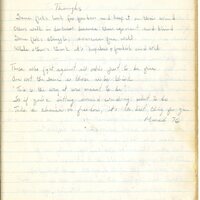 Thoughts
Some folks look for freedom and keep it in their mind
Others walk in darkness because their ignorant and blind
Some folks struggle, however you will
While others think it's hopeless
These who fight against all odds just to be free
Are not the same as those who
This is the way it was meant to be
So if you're sitting around wondering what to do
Take a chance on freedom, it's the best thing for you
March 76